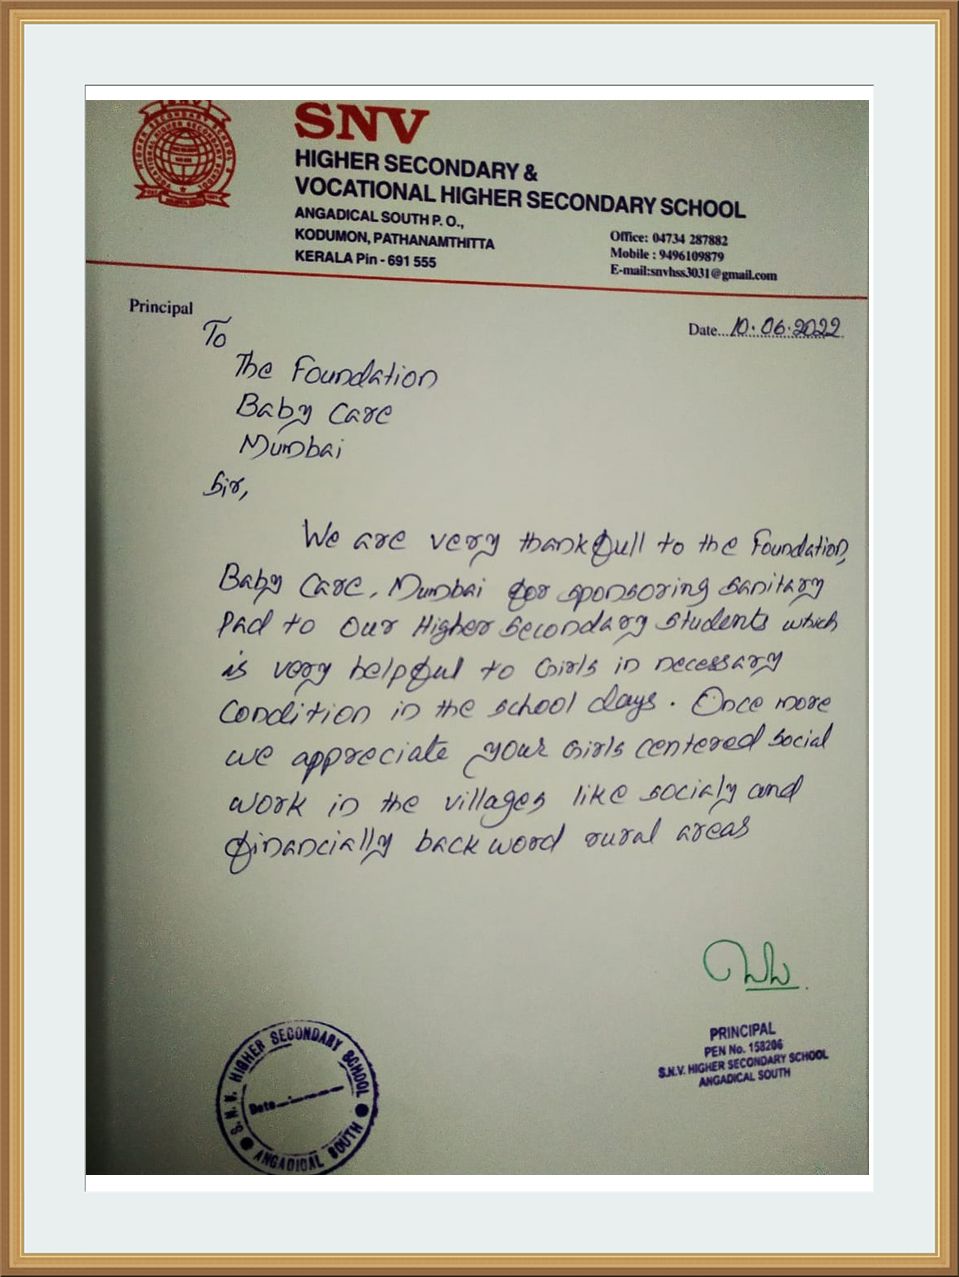 SNV
HIGHER SECONDARY &
VOCATIONAL HIGHER SECONDARY SCHOOL
ANGADICAL SOUTH P. O.,
KODUMON, PATHANAMTHITTA
KERALA Pin - 691 555
Office: 04734 287882
Mobile : 9496109879
E-mail:snvhss3031@gmail.com
Principal
Date... 10.06.2022
To
The Foundation
Baby Care
Mumbai
Sir,
We are very thankfull to the Foundation,
Baby Care, Mumbai for sponsoring sanitary
Pad to our Higher Secondary Students which
is very helpful to Girls in necessary
Condition in the school days. Once more
we appreciate your Girls centered social
work in the villages like socialy and
financially back word rural areas
PRINCIPAL
PEN No. 158206
S.N.V. HIGHER SECONDARY SCHOOL
ANGADICAL SOUTH
S.N.V. HIGHER SECONDARY SCHOOL
Date
ANGADICAL SOUTH